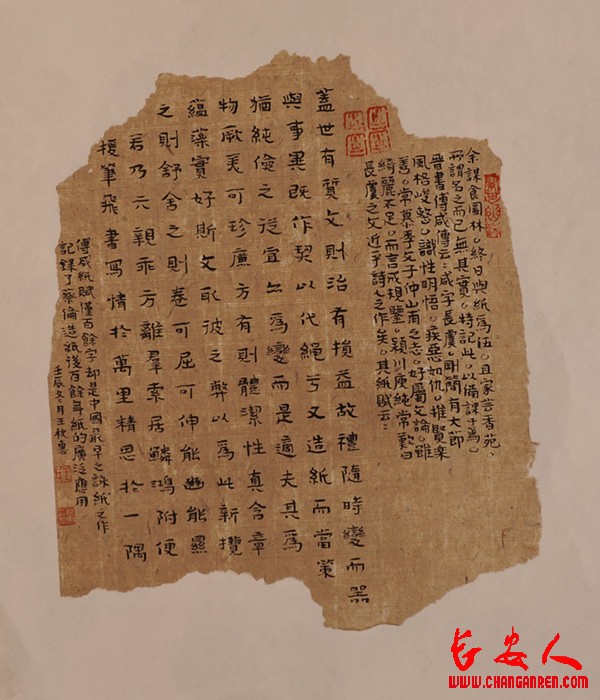 余謀食園林。終日與紙爲伍。且家芸香苑、
所謂名之而已無其實。特記此。以備課子焉。
晉書傅咸傳云:咸字長虞。剛簡有大節
風格峻整。識性明悟。疾惡如仇。推賢樂
善。常慕季文子仲山甫之志。好屬文論。雖
綺麗不足。而言成規鑒。潁川庾純常歎曰
長虞之文近乎詩人之作矣。其紙賦云:
蓋世有質文則治有損益故禮隨時變而器
與事異既作契以代繩兮又造紙而當策
猶純儉之從宜亦爲變而是適夫其爲
物厥美可珍廉方有則體潔性真含章
蘊藻實好斯文取彼之弊以爲此新攬
之則舒舍之則卷可屈可伸能幽能顯
若乃六親乖方離羣索居鱗鴻附便
援筆飛書寫情於萬里精思於一隅
傅咸紙賦僅百餘字却是中國最早之詠紙之作
記錄了蔡倫造紙後百餘年紙的廣泛應用
壬辰冬月王秋
长安人
WWW.CHANGANREN.COM